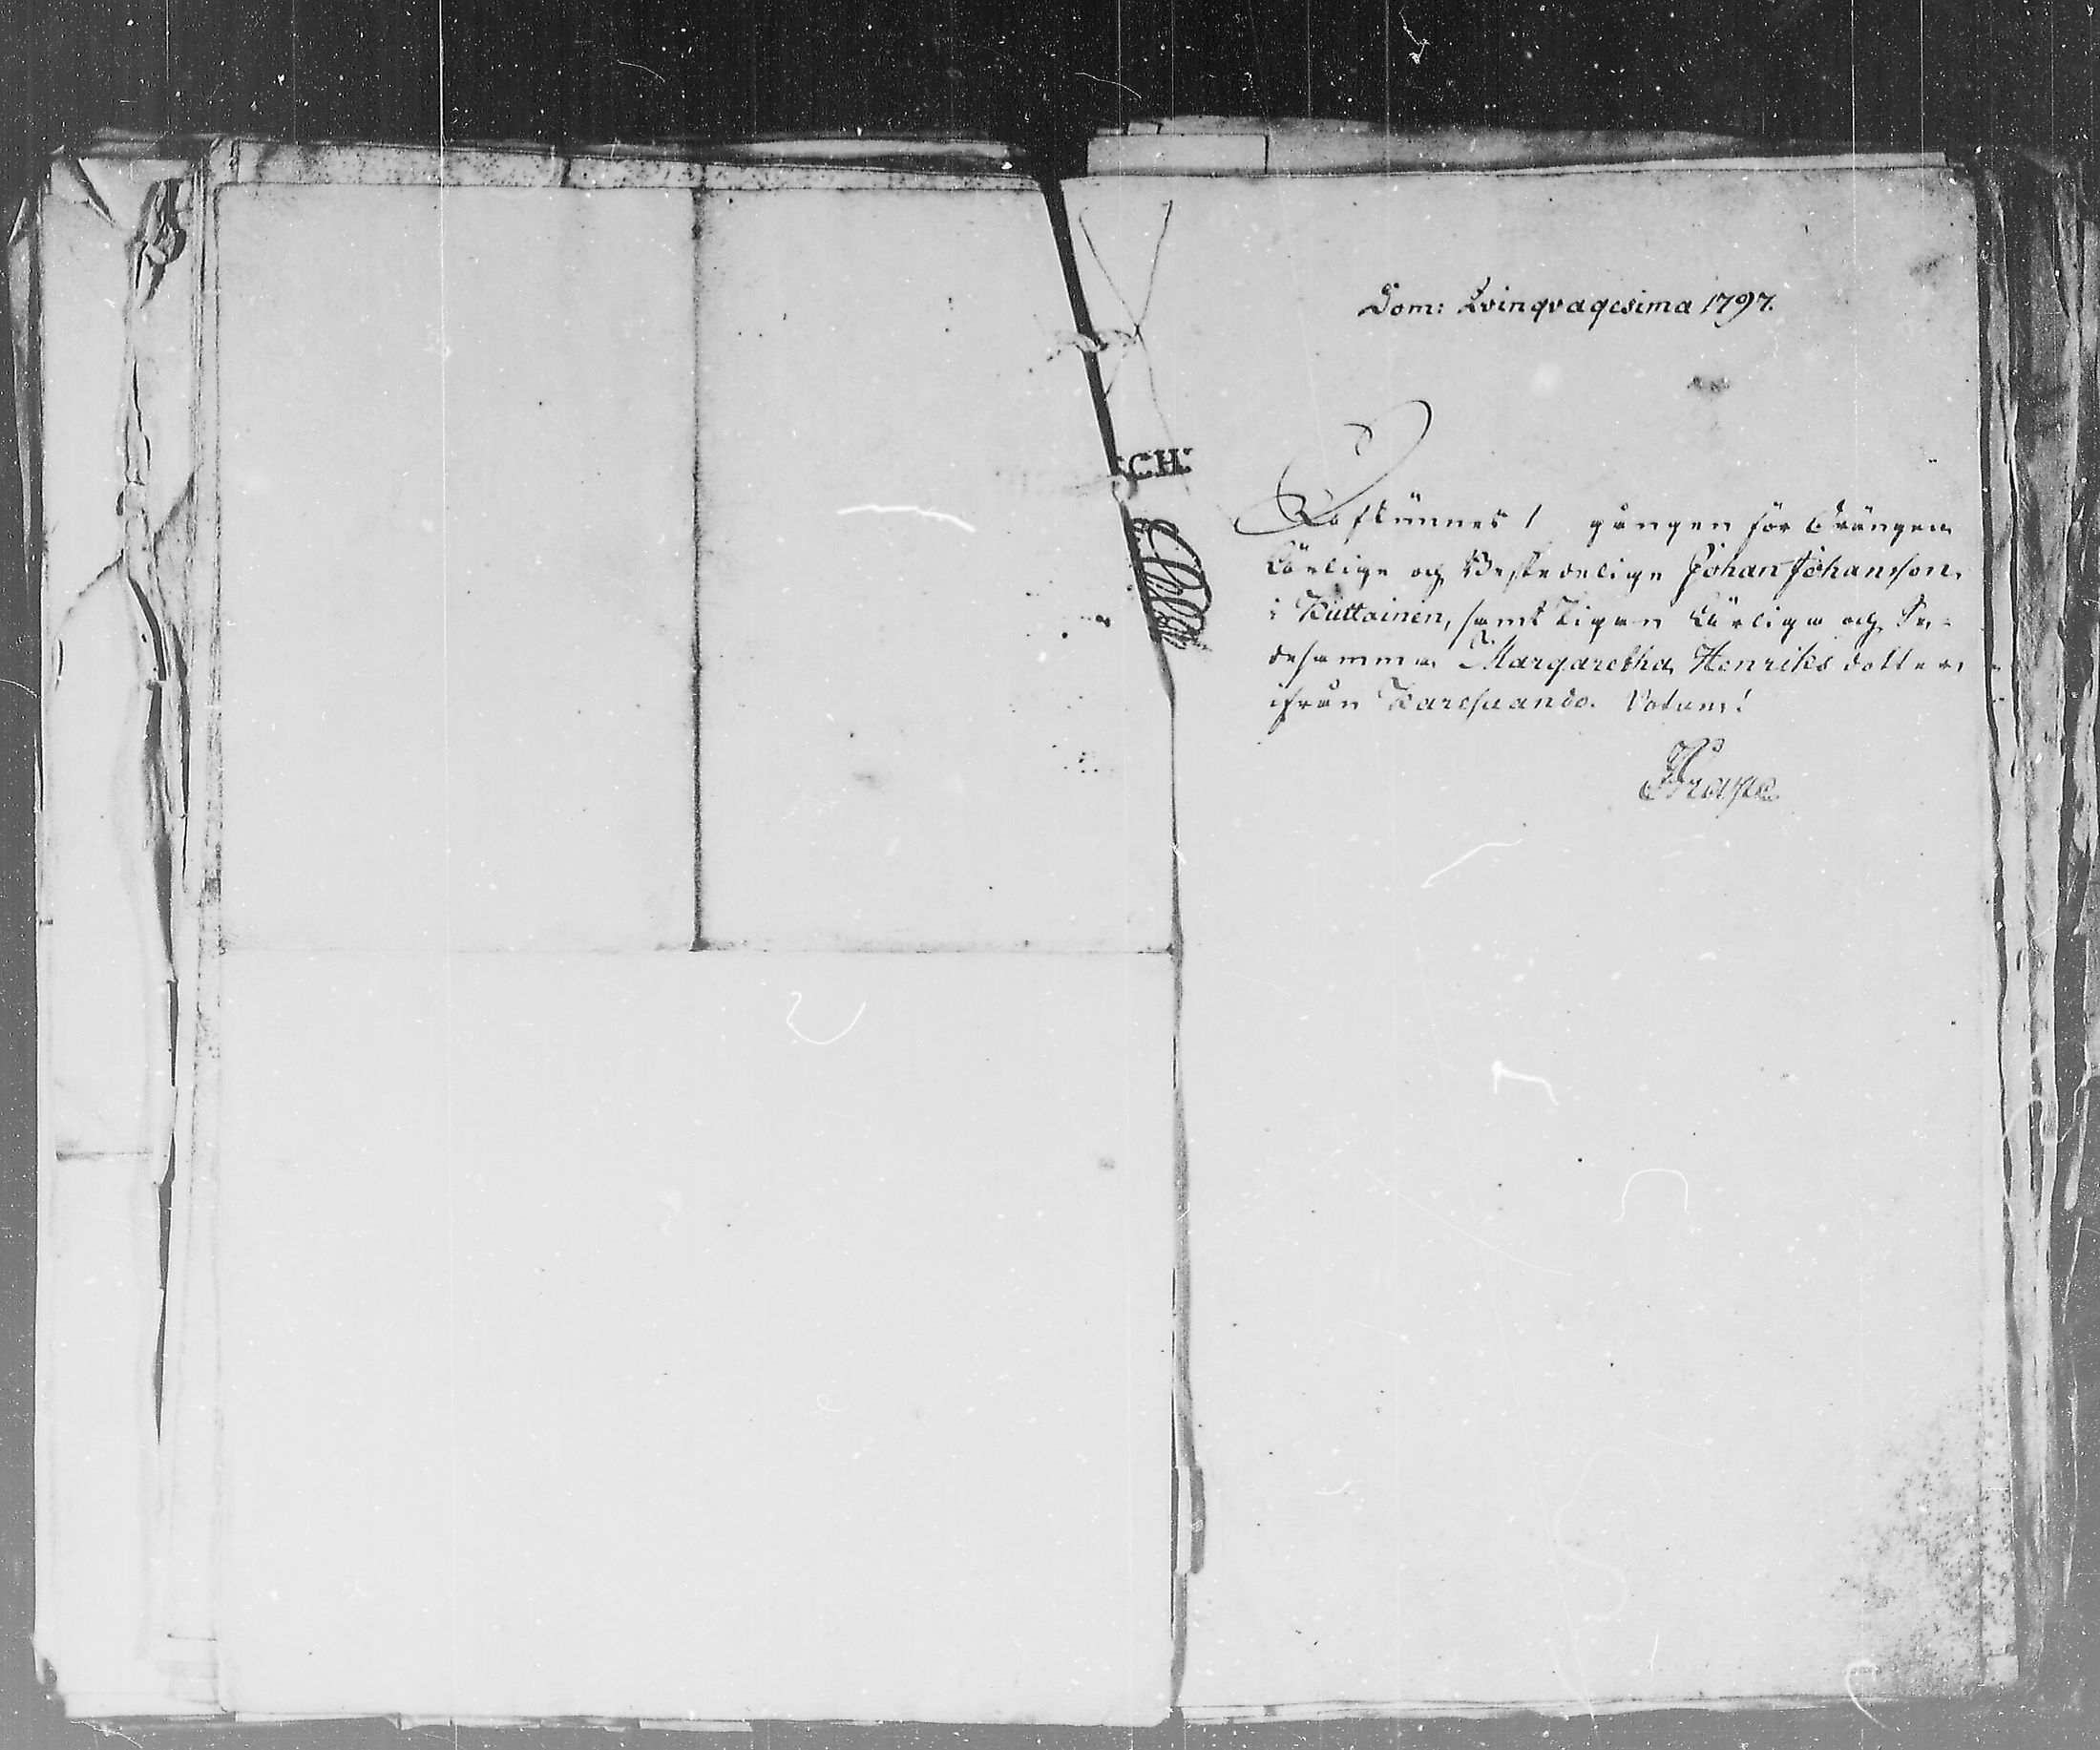 Dom: Qvinqvagesima 1797.
CH:
Afkunnes 1 gången för Drängen
Ärlige och Beskedelige Johan Johansson
i Kuttainen, samt Pigan Ärliga och Se-
desamma Margaretha Henriks dotter
ifrån Karesuando. Votum!